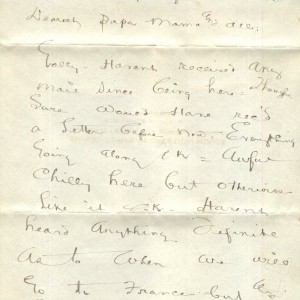 Dearest Papa Mama & all:
Golly - Havent received any
mail since being here - Though
Sure would have rec'd
a Letter before now - Everything
Going along O.K = Awful
Chilly here but otherwise
Like it O.K. Havent
hears Anything Definite
As to when we will
Go to France but